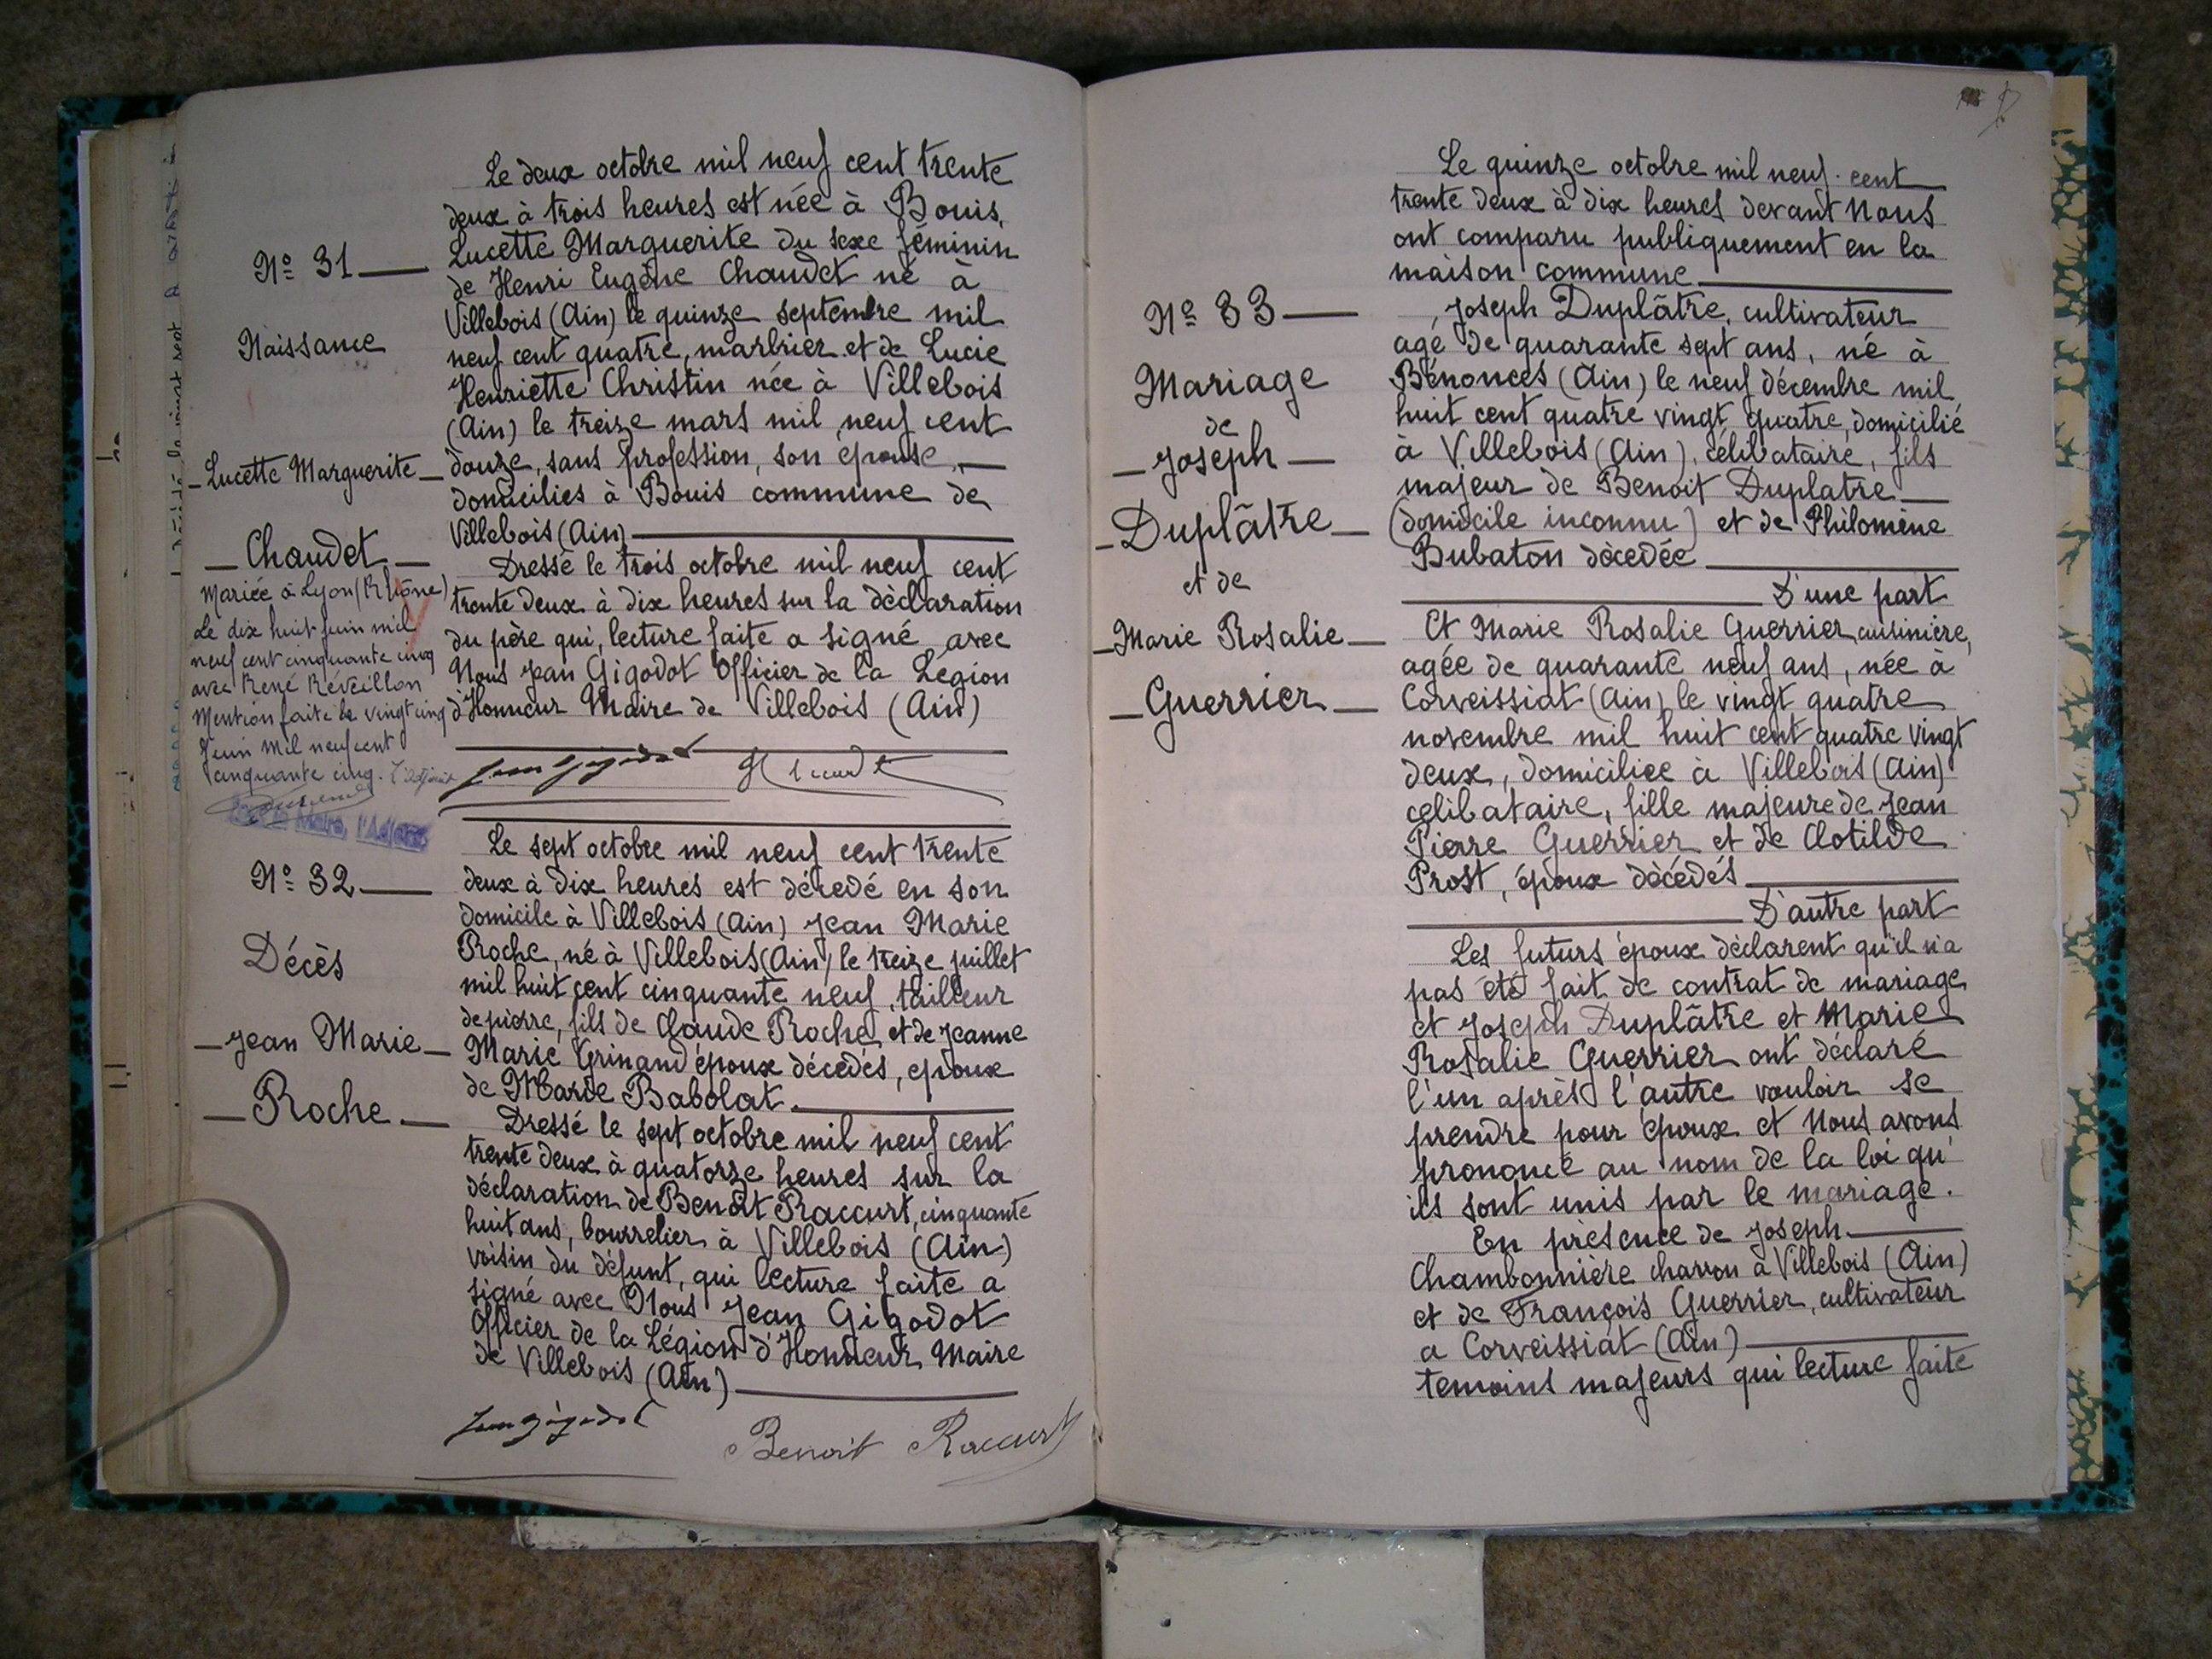 Nº 31
Naissance
Lucette Marguerite
Chaudet
Mariée à Lyon (Rhône)
Le dix huit juin mil
neuf cent cinquante cinq
avec René Réveillon
Mention faite le vingt cinq
Juin mil neuf cent
cinquante cinq. L'adjoint
Le deux octobre mil neuf cent trente
deux à trois heures est née à Bouis,
Lucette Marguerite du sexe féminin
de Henri Eugène Chaudet né à
Villebois (Ain) le quinze septembre mil
neuf cent quatre, marbrier et de Lucie
Henriette Christin née à Villebois
(Ain) le treize mars mil neuf cent
douze, sans profession, son épouse,
domiciliés à Bouis commune de
Villebois (Ain)
Dressé le trois octobre mil neuf cent
trente deux à dix heures sur la déclaration
du père qui, lecture faite a signé avec
Nous Jean Gigodot Officier de la Légion
d'Honneur Maire de Villebois (Ain)
Nº 32
Décès
Jean Marie
Roche
Le sept octobre mil neuf cent trente
deux à dix heures est décedé en son
domicile à Villebois (Ain) Jean Marie
Roche, né à Villebois (Ain) le treize juillet
mil huit cent cinquante neuf, tailleur
de pierre, fils de Claude Roche et de Jeanne
Marie Grinand époux décedés, epoux
de Marie Babolat.
Dressé le sept octobre mil neuf cent
trente deux à quatorze heures sur la
déclaration de Benoît Raccurt, cinquante
huit ans, bourrelier à Villebois (Ain)
voisin du défunt, qui lecture faite a
signé avec Nous Jean Gigodot
Officier de la Légion d'Honneur Maire
de Villebois (Ain)
Jean Gigodot
Benoit Raccurt
Nº 33
Mariage
de
Joseph
Duplâtre
et de
Marie Rosalie
Guerrier
Le quinze octobre mil neuf cent
trente deux à dix heures devant Nous
ont comparu publiquement en la
maison commune
Joseph Duplâtre, cultivateur
agé de quarante sept ans, né à
Bénonces (Ain) le neuf décembre mil
huit cent quatre vingt quatre, domicilié
à Villebois (Ain), célibataire, fils
majeur de Benoit Duplatre
(domicile inconnu) et de Philomène
Bubaton dècedée
D'une part
Et Marie Rosalie Guerrier, cuisinière,
agée de quarante neuf ans, née à
Corveissiat (Ain) le vingt quatre
novembre mil huit cent quatre vingt
deux, domiciliée à Villebois (Ain)
celibataire, fille majeure de Jean
Pierre Guerrier et de Clotilde
Prost, époux dècédés
D'autre part
Les futurs époux déclarent qu'il n'a
pas été fait de contrat de mariage
et Joseph Duplâtre et Marie
Rosalie Guerrier ont déclaré
l'un après l'autre vouloir se
prendre pour époux et Nous avons
prononcé au nom de la loi qu'
ils sont unis par le mariage.
En présence de Joseph
Chambonnière charron à Villebois (Ain)
et de François Guerrier, cultivateur
a Corveissiat (Ain)
temoins majeurs qui lecture faite